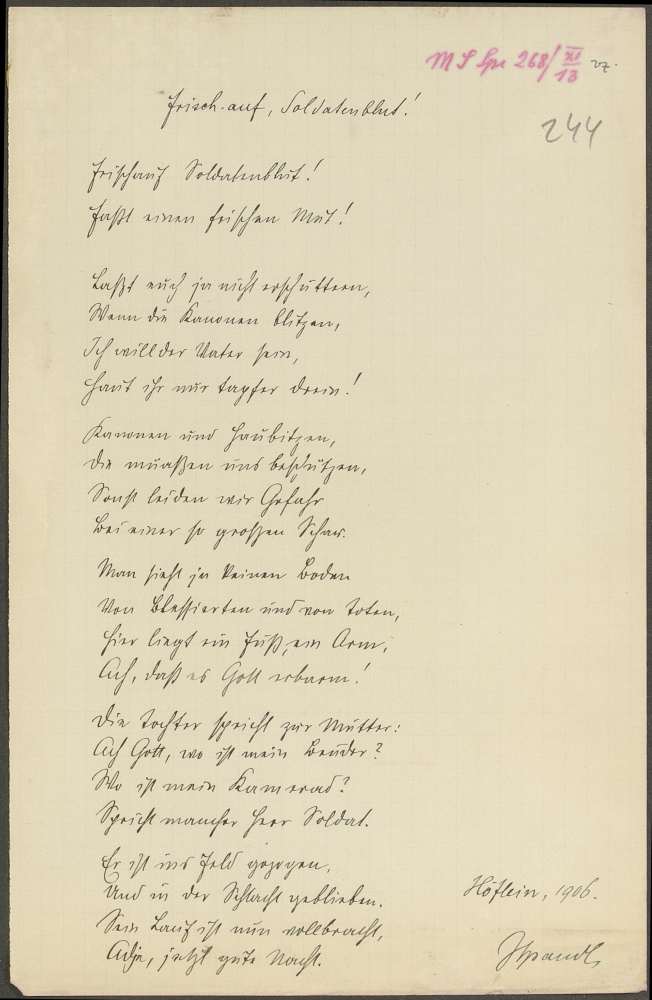 M S Spr 268/XI 27.
13
Frisch-auf, Soldatenblut!
244
Frischauf Soldatenblut!
Faßt einen frischen Mut!
Laßt euch ja nicht erschüttern,
Wenn die Kanonen blitzen,
Ich will der Vater sein,
Haut ihr nur tapfer drein!
Kanonen und Haubitzen,
Die müaßen uns beschützen,
Sonst leiden wir Gefahr
Bei einer so großen Schar.
Man sieht ja keinen Boden
Von Blessierten und von Toten,
Hier liegt ein Fuß, ein Arm,
Ach, daß es Gott erbarm!
Die Tochter spricht zur Mutter:
Ach Gott, wo ist mein Bruder?
Wo ist mein Kamerad?
Spricht mancher Herr Soldat.
Er ist ins Feld gezogen,
Und in der Schlacht geblieben.
Sein Lauf ist nun vollbracht,
Adje, jetzt gute Nacht.
Höflein, 1906.